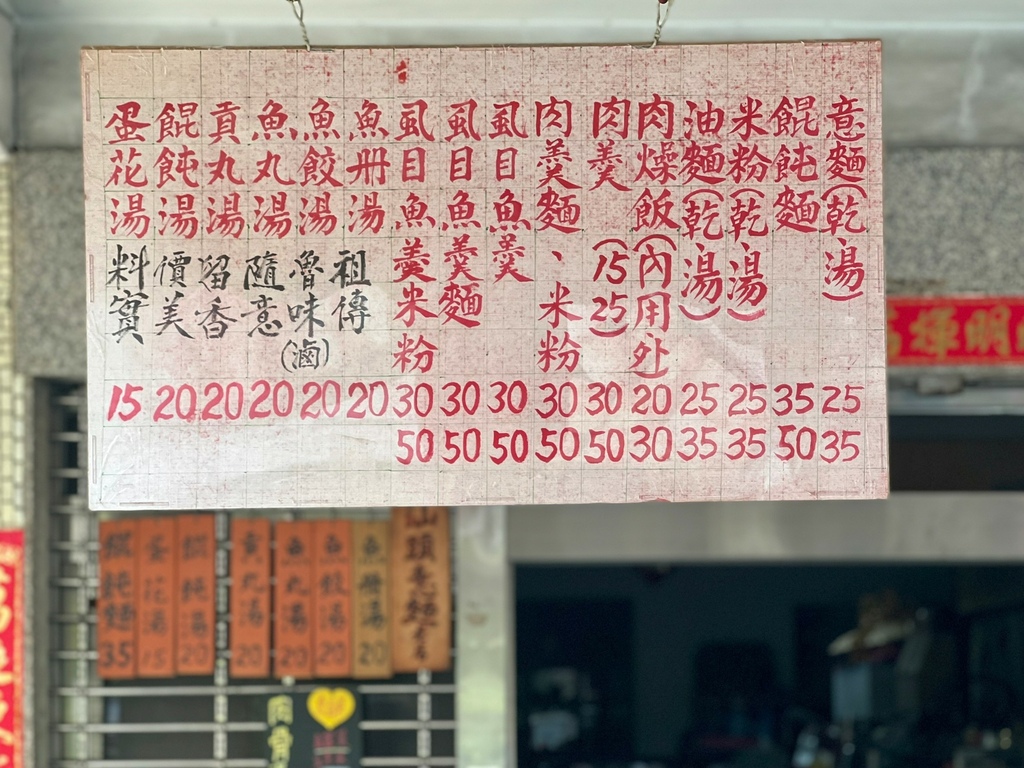 意麵(乾、湯) 25 35
餛飩麵 35 50
米粉(乾、湯) 25 35
油麵(乾、湯) 25 35
肉燥飯(內用外) 20 30
肉羹(15 25) 30 50
肉羹麵、米粉 30 50
虱目魚羹 30 50
虱目魚羹麵 30 50
虱目魚羹米粉 30 50
魚冊湯 20
魚餃湯 20
魚丸湯 20
貢丸湯 20
餛飩湯 20
蛋花湯 15
祖傳
魯味(滷)
隨意
留香
價美
料實
明輝
魚冊湯 20
魚餃湯 20
魚丸湯 20
貢丸湯 20
餛飩湯 20
蛋花湯 15
餛飩麵 35